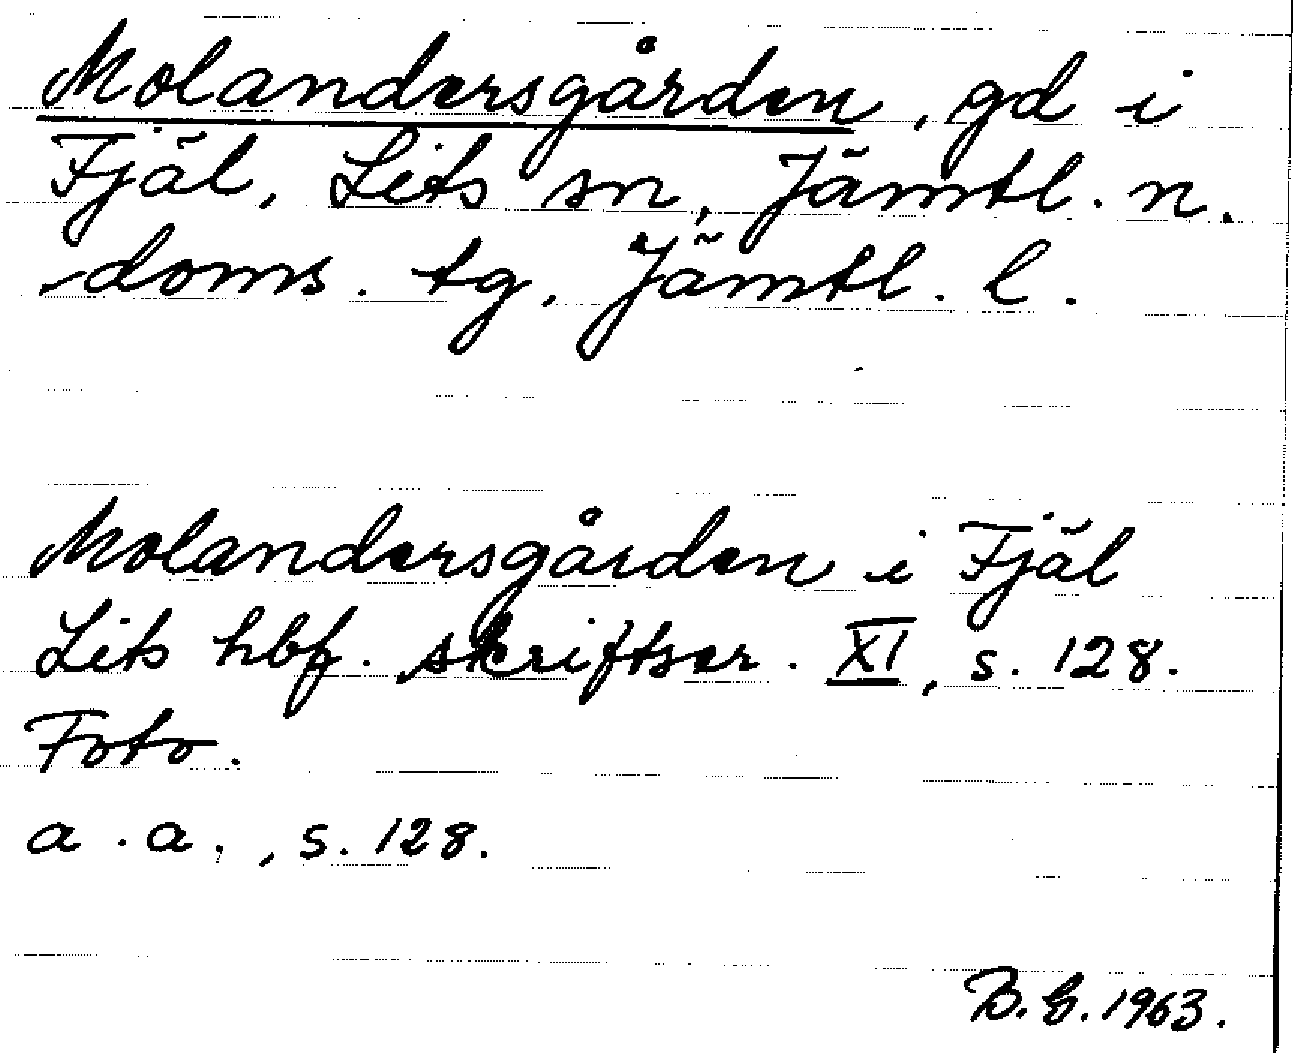 Molandersgården, gd i
Fjäl, Lits sn, Jämtl. n.
doms. tg, Jämtl. l.
Molandersgården i Fjäl
Lits hbf. skriftser. XI, s. 128.
Foto.
a.a., s. 128.
B.G. 1963.